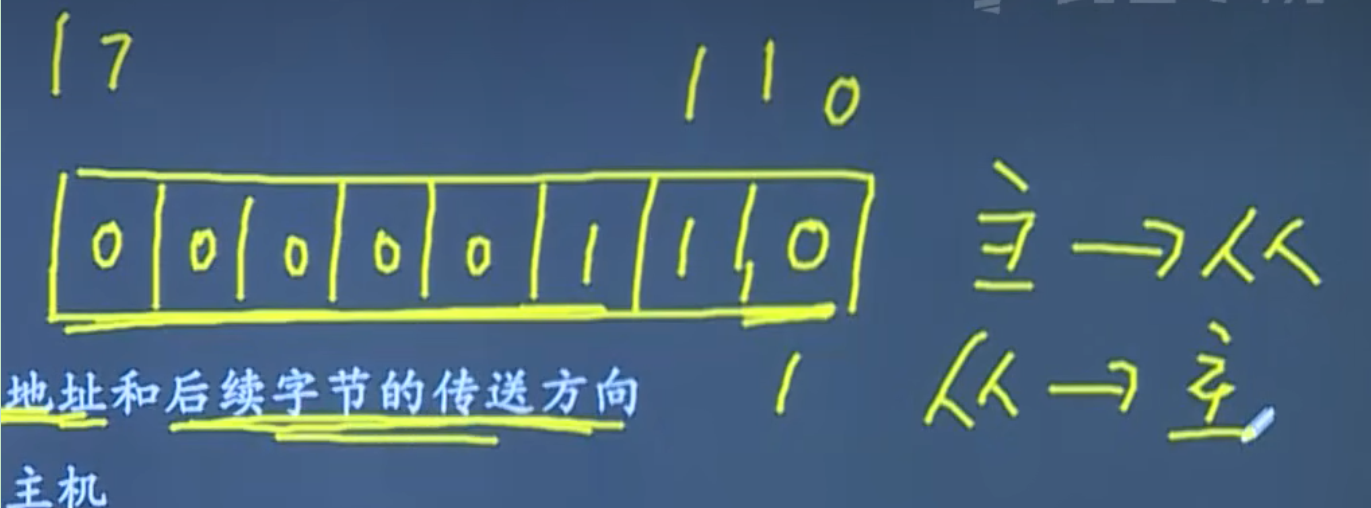 17 1 1 0
0 0 0 0 0 1 1 0 主→从
地址和后续字节的传送方向 1 从→主
主机